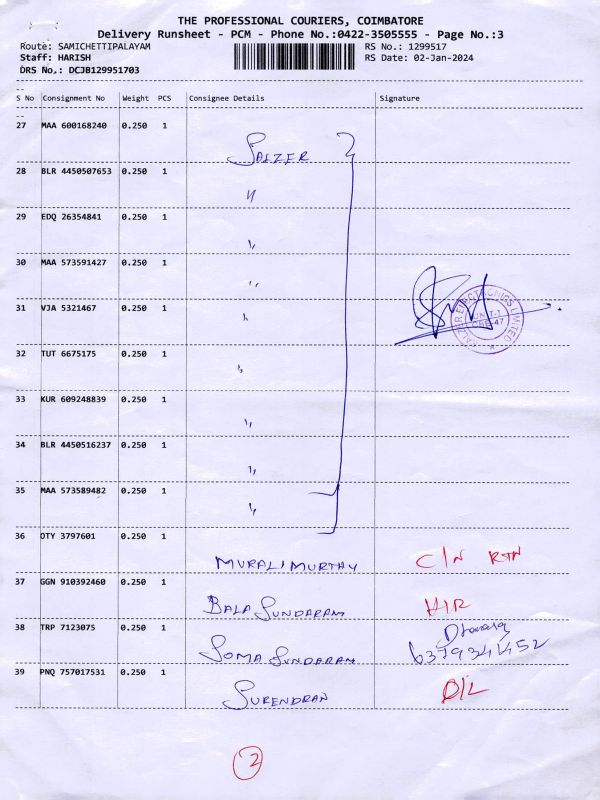 THE PROFESSIONAL COURIERS, COIMBATORE
Delivery Runsheet - PCM - Phone No.:0422-3505555 - Page No.:3
Route: SAMICHETTIPALAYAM RS No.: 1299517
Staff: HARISH RS Date: 02-Jan-2024
DRS No.: DCJB129951703
S No Consignment No Weight PCS Consignee Details Signature
27 MAA 600168240 0.250 1
SALZER
28 BLR 4450507653 0.250 1
〃
29 EDQ 26354841 0.250 1
〃
30 MAA 573591427 0.250 1
〃
31 VJA 5321467 0.250 1
〃
SALZER ELECTRONICS LIMITED
UNIT-I
CBE-47
32 TUT 6675175 0.250 1
〃
33 KUR 609248839 0.250 1
〃
34 BLR 4450516237 0.250 1
〃
35 MAA 573589482 0.250 1
〃
36 OTY 3797601 0.250 1
MURALI MURTHY C/N RTN
37 GGN 910392460 0.250 1
BALA SUNDARAM
38 TRP 7123075 0.250 1
SOMA SUNDARAM
39 PNQ 757017531 0.250 1
SURENDRAN D/L
2